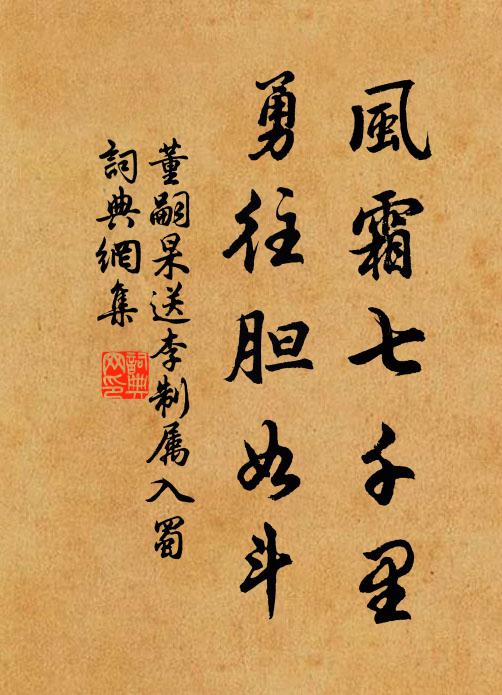 風霜七千里
勇往胆如斗
董嗣杲送李制属入蜀
詞典網集
詞典网印